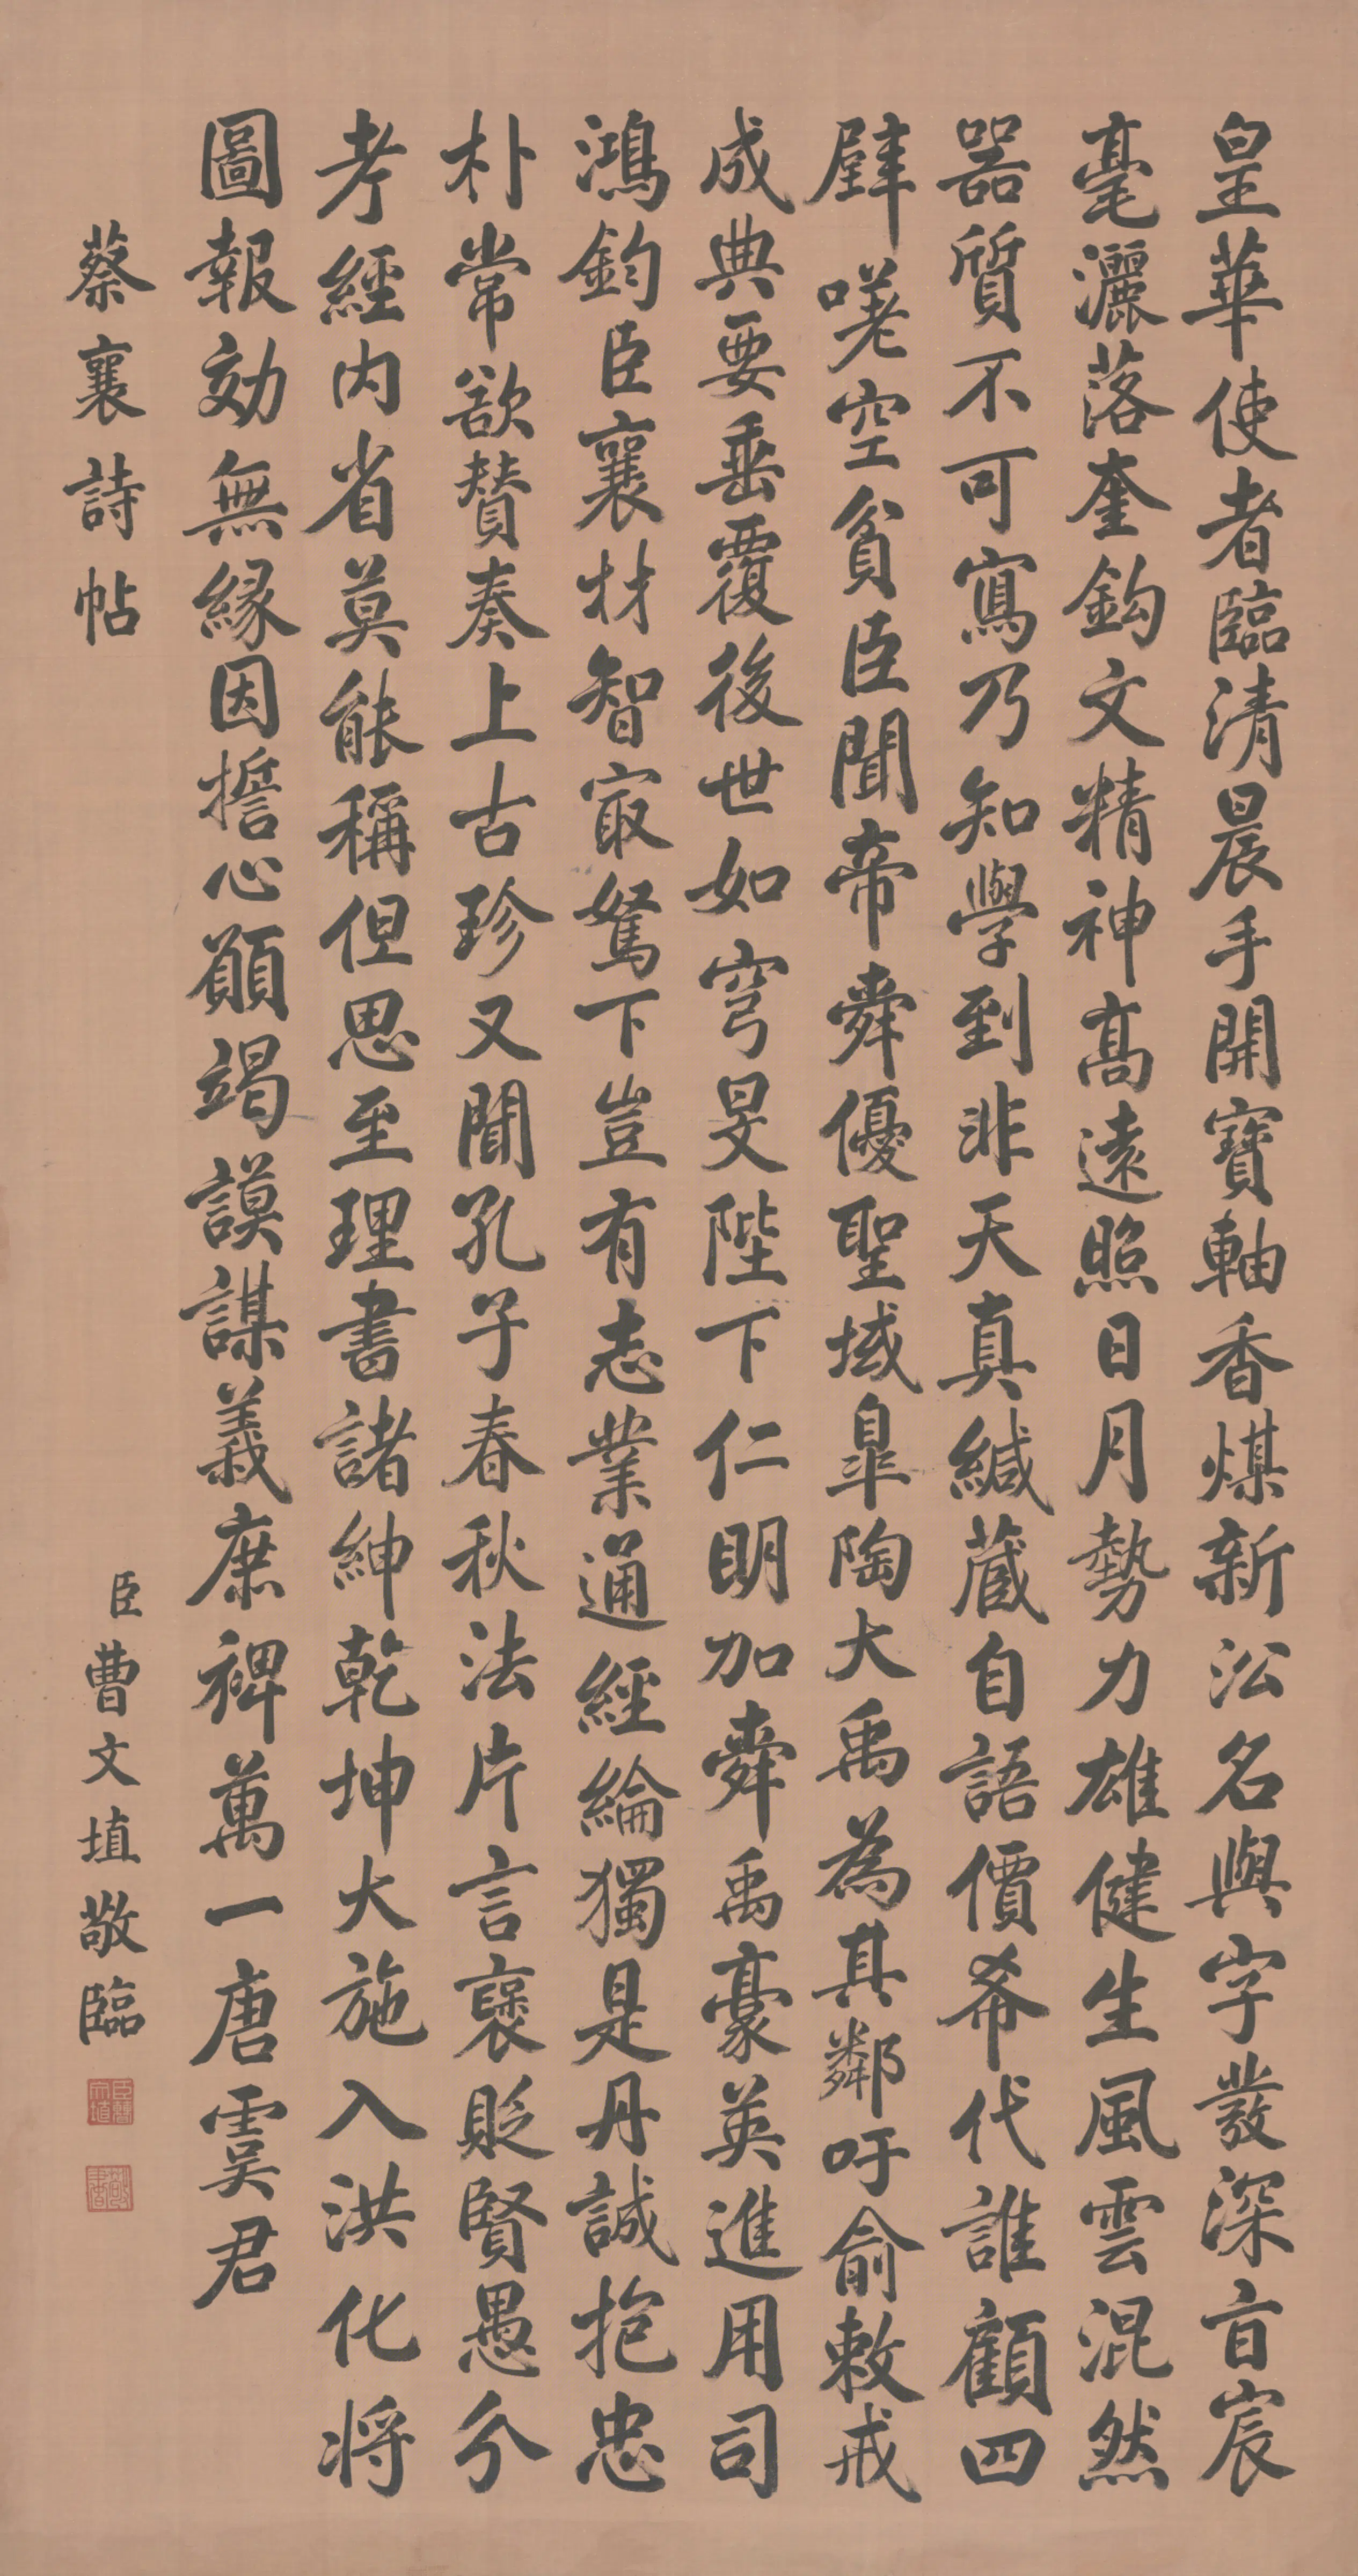 皇華使者臨清晨手開寶軸香煤新沿名與字發深旨宸
毫灑落奎鈎文精神髙遠照日月勢力雄健生風雲混然
器質不可寫乃知學到非天真緘蔵自語價希代誰顧四
壁嗟空貧臣聞帝舜優聖域臯陶大禹為其鄰吁俞敕戒
成典要垂覆後世如穹旻陛下仁明加舜禹豪英進用司
鴻鈞臣襄材智冣駑下豈有志業通經綸獨是丹誠抱忠
朴常欲賛奏上古珍又聞孔子春秋法片言褒貶賢愚分
考經内省莫能稱但思至理書諸紳乾坤大施入洪化将
圖報効無縁因擔心願竭謨謀義庶裨萬一唐虞君
蔡襄詩帖
臣曹文埴敬臨
臣曹文埴
敬書